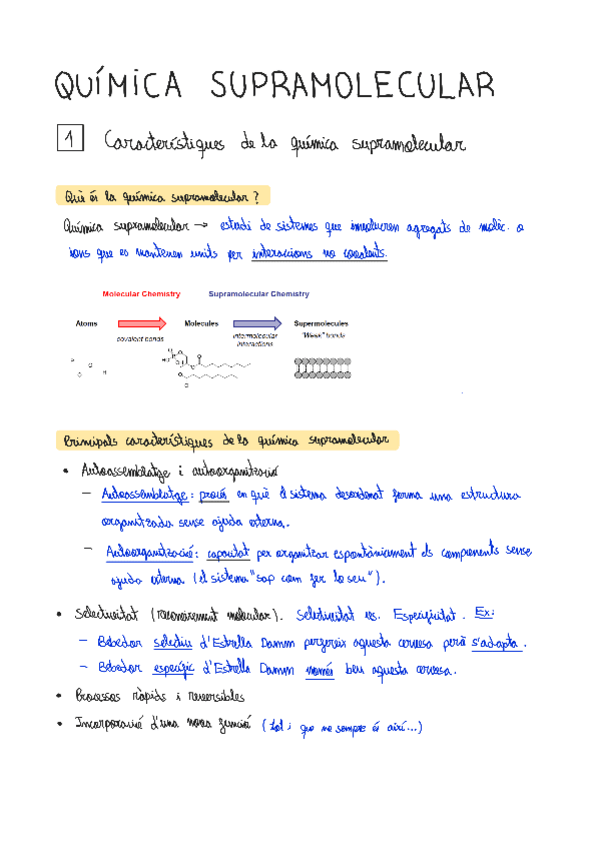 QUÍMICA SUPRAMOLECULAR
1 Característiques de la química supramolecular
Què és la química supramolecular?
Química supramolecular → estudi de sistemes que involucren agregats de molèc. o
ions que es mantenen units per interaccions no covalents.
Molecular Chemistry Supramolecular Chemistry
Atoms Molecules Supermolecules
covalent bonds intermolecular interactions "Weak" bonds
Principals característiques de la química supramolecular
• Autoassemblatge i autoorganització
– Autoassemblatge: procés en què el sistema desordenat forma una estructura
organitzada sense ajuda externa.
– Autoorganització: capacitat per organitzar espontàniament els components sense
ajuda externa (el sistema "sap com fer lo seu").
• Selectivitat (reconeixement molecular). Selectivitat vs. Especificitat. Ex:
– Bebedor selectiu d'Estrella Damm prefereix aquesta cervesa però s'adapta.
– Bebedor específic d'Estrella Damm només beu aquesta cervesa.
• Processos ràpids i reversibles
• Incorporació d'una nova funció (tot i que no sempre és així...)